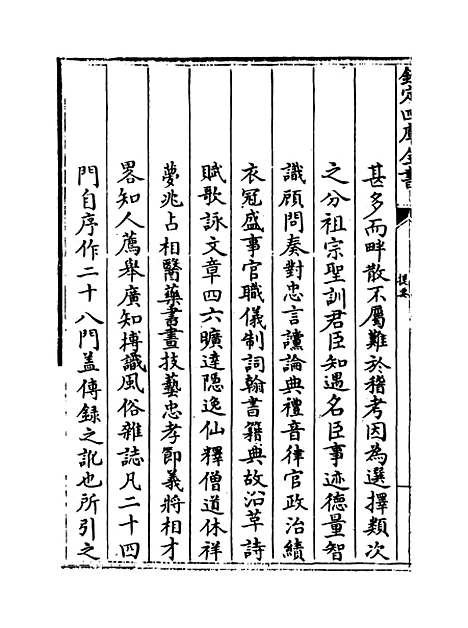 欽定四庫全書
提要
甚多而畔散不屬難於稽考因為選擇類次
之分祖宗聖訓君臣知遇名臣事迹德量智
識顧問奏對忠言讜論典禮音律官政治績
衣冠盛事官職儀制詞翰書籍典故沿革詩
賦歌詠文章四六曠達隠逸仙釋僧道休祥
夢兆占相醫藥書畫技藝忠孝節義將相才
畧知人薦舉廣知博識風俗雜誌凡二十四
門自序作二十八門盖傳録之訛也所引之